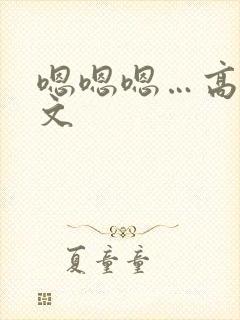 嗯嗯嗯…高
文
夏童童